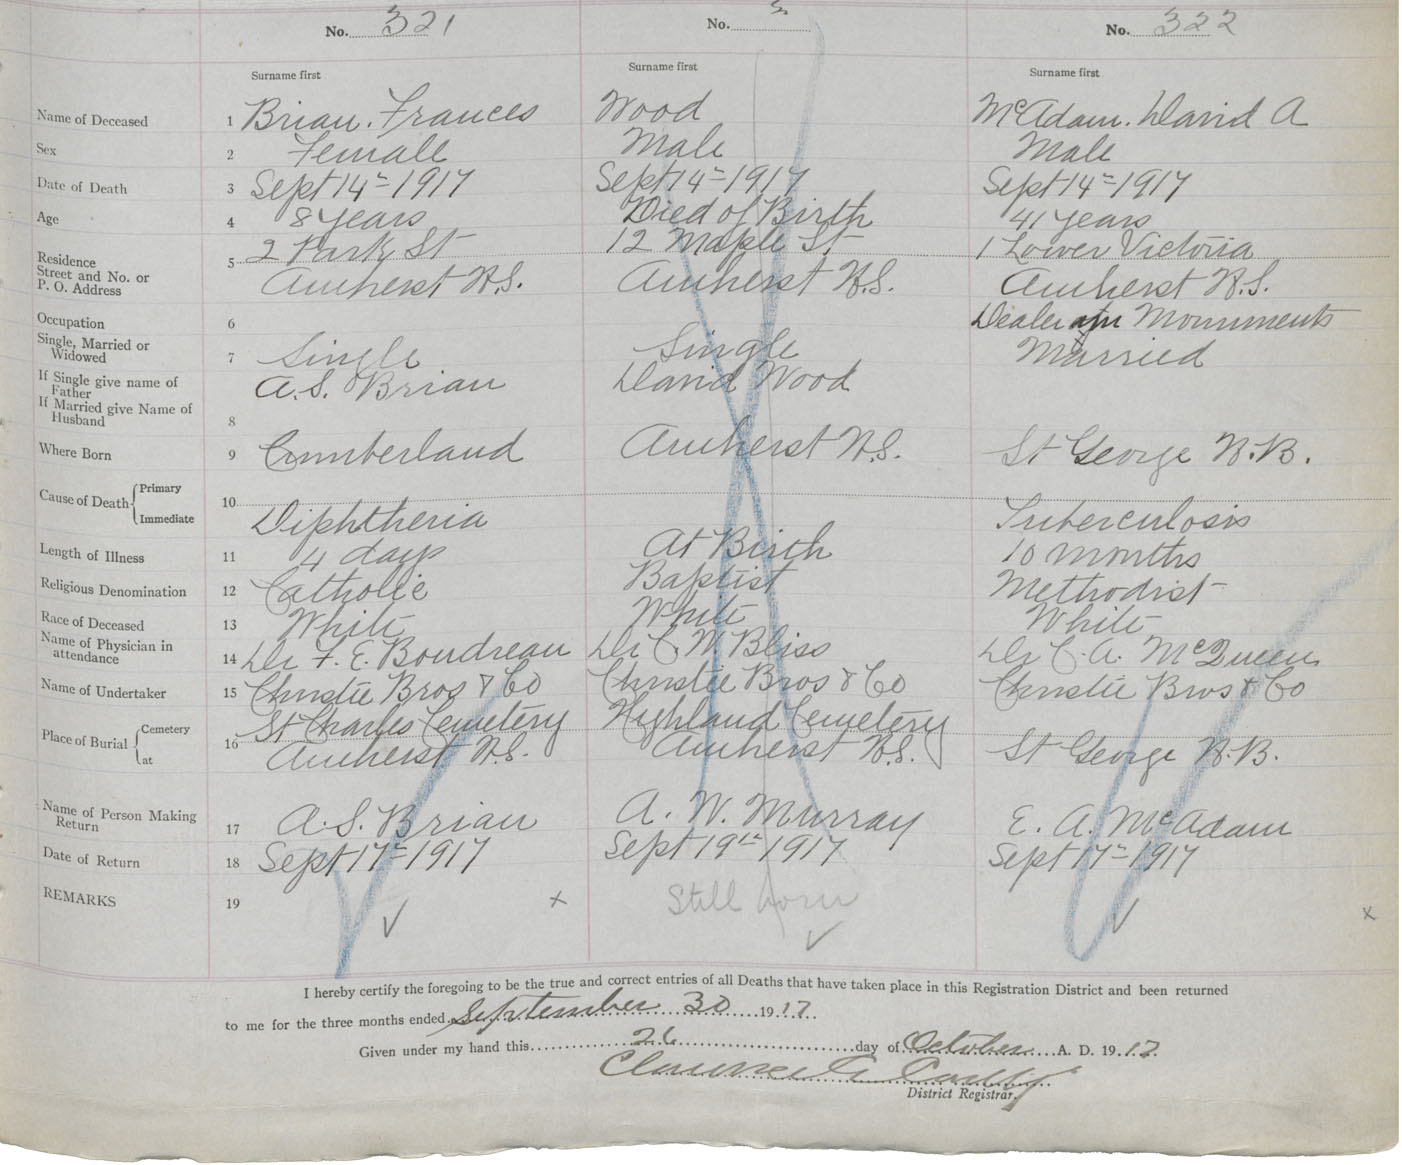 No. 321 No. No. 322
Surname first Surname first Surname first
Name of Deceased 1 Brian. Frances Wood McAdam. David A
Sex 2 Female Male Male
Date of Death 3 Sept 14th 1917 Sept 14th 1917 Sept 14th 1917
Age 4 8 years Died of Birth 41 years
Residence 2 Park St 12 Maple St. 1 Lower Victoria
Street and No. or 5
P. O. Address Amherst N.S. Amherst N.S. Amherst N.S.
Occupation 6 Dealer in Monuments
Single, Married or
Widowed 7 Single Single Married
If Single give name of
Father A.S. Brian David Wood
If Married give Name of
Husband 8
Where Born 9 Cumberland Amherst N.S. St George N.B.
Cause of Death Primary 10
Immediate Diphtheria Tuberculosis
Length of Illness 11 4 days At Birth 10 months
Religious Denomination 12 Catholic Baptist Methodist
Race of Deceased 13 White White White
Name of Physician in
attendance 14 Dr F. E. Boudreau Dr C. W Bliss Dr C. A. McQueen
Name of Undertaker 15 Christie Bros & Co Christie Bros & Co Christie Bros & Co
Place of Burial Cemetery 16 St Charles Cemetery Highland Cemetery
at Amherst N.S. Amherst N.S. St George N.B.
Name of Person Making
Return 17 A.S. Brian A. W. Murray E. A. McAdam
Date of Return 18 Sept 17th 1917 Sept 19th 1917 Sept 17th 1917
REMARKS 19 Still born
I hereby certify the foregoing to be the true and correct entries of all Deaths that have taken place in this Registration District and been returned
to me for the three months ended September 30 1917.
Given under my hand this 26 day of October A. D. 1917
Clarence
District Registrar.